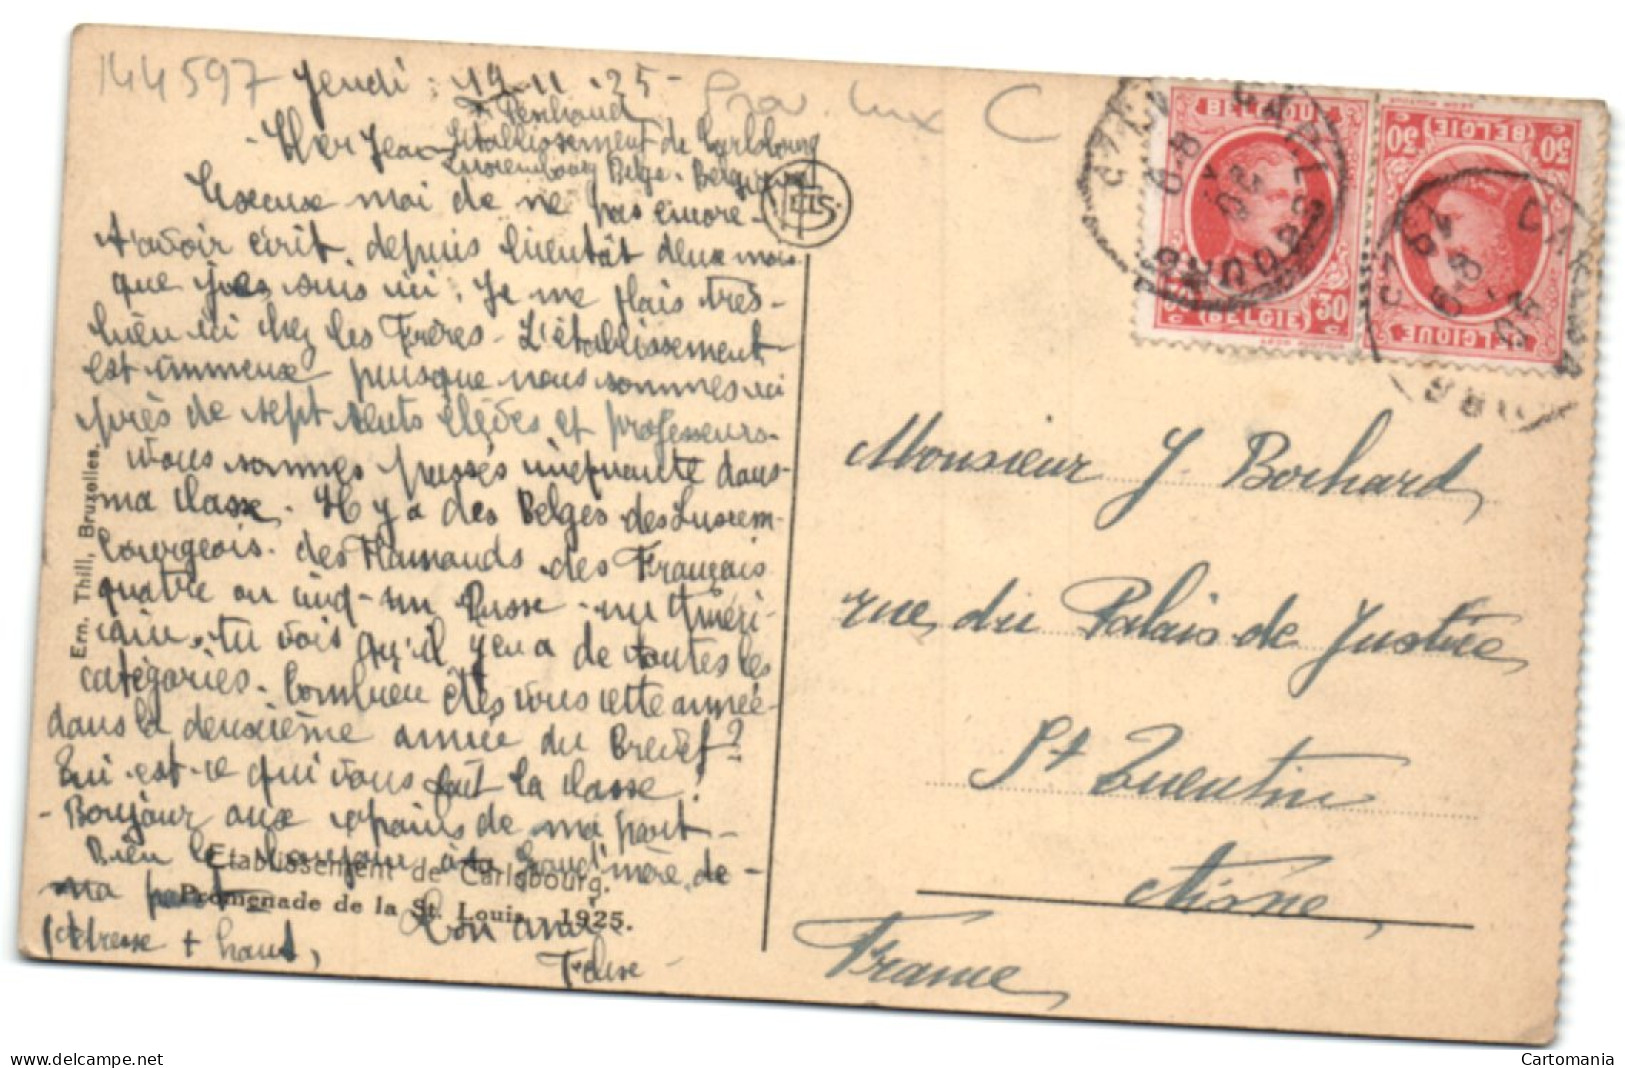 144597 Jeudi : 19-11-25-
Prov. Lux C
Etablissement de Carlsbourg
Luxembourg Belge. Belgique
- Cher Jean
Excuse moi de ne pas encore
t'avoir écrit, depuis bientôt deux mois
que je suis ici. Je me plais très-
bien ici chez les Frères. L'établissement
est immense puisque nous sommes ici
près de sept cents élèves et professeurs.
Nous sommes passés cinquante dans
ma classe. Il y a des Belges des Luxem-
bourgeois. des Flamands des Français
quatre ou cinq - un Russe - un Améri-
cain, tu vois qu'il y en a de toutes les
catégories. Combien êtes vous cette année
dans la deuxième année du Brevet?
Qui est-ce qui vous fait la classe?
- Bonjour aux copains de ma part -
Bien le bonjour à ta Grand'mère, de -
ma part -
Ton ami
(Adresse + haut)
Etablissement de Carlsbourg.
Promenade de la St. Louis. 1925.
Ern. Thill, Bruxelles.
BELGIQUE
30 c (BELGIE) 30 c
BELGIE
30 30
BELGIQUE
CARLSBOURG
Monsieur J. Bochard
rue du Palais de Justice
St Quentin
Aisne
France
delcampe.net
Cartomania